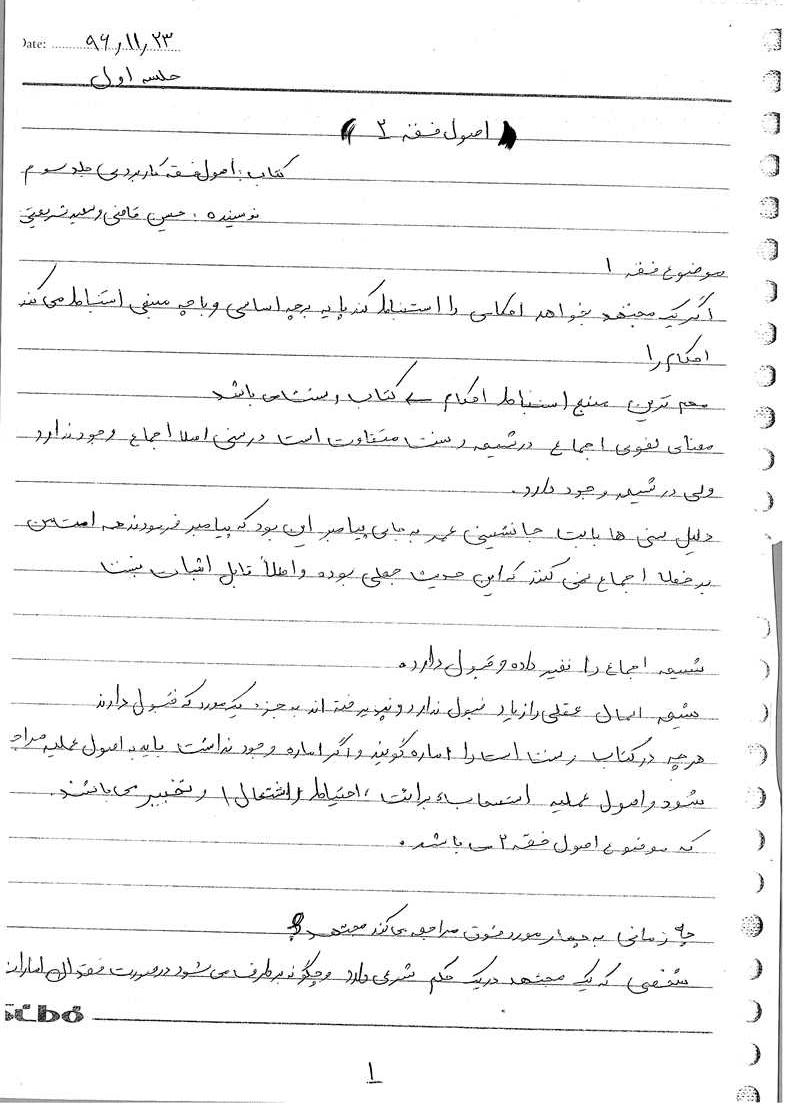 Date: ۹۶,۱۱,۲۳
جلسه اول
( اصول فقه ۲ )
کتاب: اصول فقه کاربردی جلد سوم
نویسنده: حسین قافی و سعید شریعتی
موضوع فقه ۱
اگر یک مجتهد بخواهد احکامی را استنباط کند باید بر چه اساسی و با چه منبعی استنباط می کند
احکام را
مهم ترین منبع استنباط احکام ← کتاب و سنت می باشد
معنای لغوی اجماع در شیعه و سنت متفاوت است در سنی اصلا اجماع وجود ندارد
ولی در شیعه وجود دارد.
دلیل سنی ها بابت جانشینی عمر به جای پیامبر این بود که پیامبر فرمودند همه امت من
بر خطا اجماع نمی کنند که این حدیث جعلی بوده و اصلاً قابل اثبات نیست
شیعه اجماع را تغییر داده و قبول دارد.
شیعه اعمال عقلی را زیاد قبول ندارد و نپذیرفته اند به جزء یک مورد که قبول دارند
هر چه در کتاب و سنت است را اماره گویند و اگر اماره وجود نداشت باید به اصول عملیه مراجعه
شود و اصول عملیه استصحاب، برائت، احتیاط (اشتغال) و تخییر می باشند.
که موضوع اصول فقه ۲ می باشد.
چه زمانی به چهار مورد فوق مراجعه می کند مجتهد؟
شخصی که یک مجتهد در یک حکم شرعی دارد و چگونه برطرف می شود در صورت فقدان امارات
۱